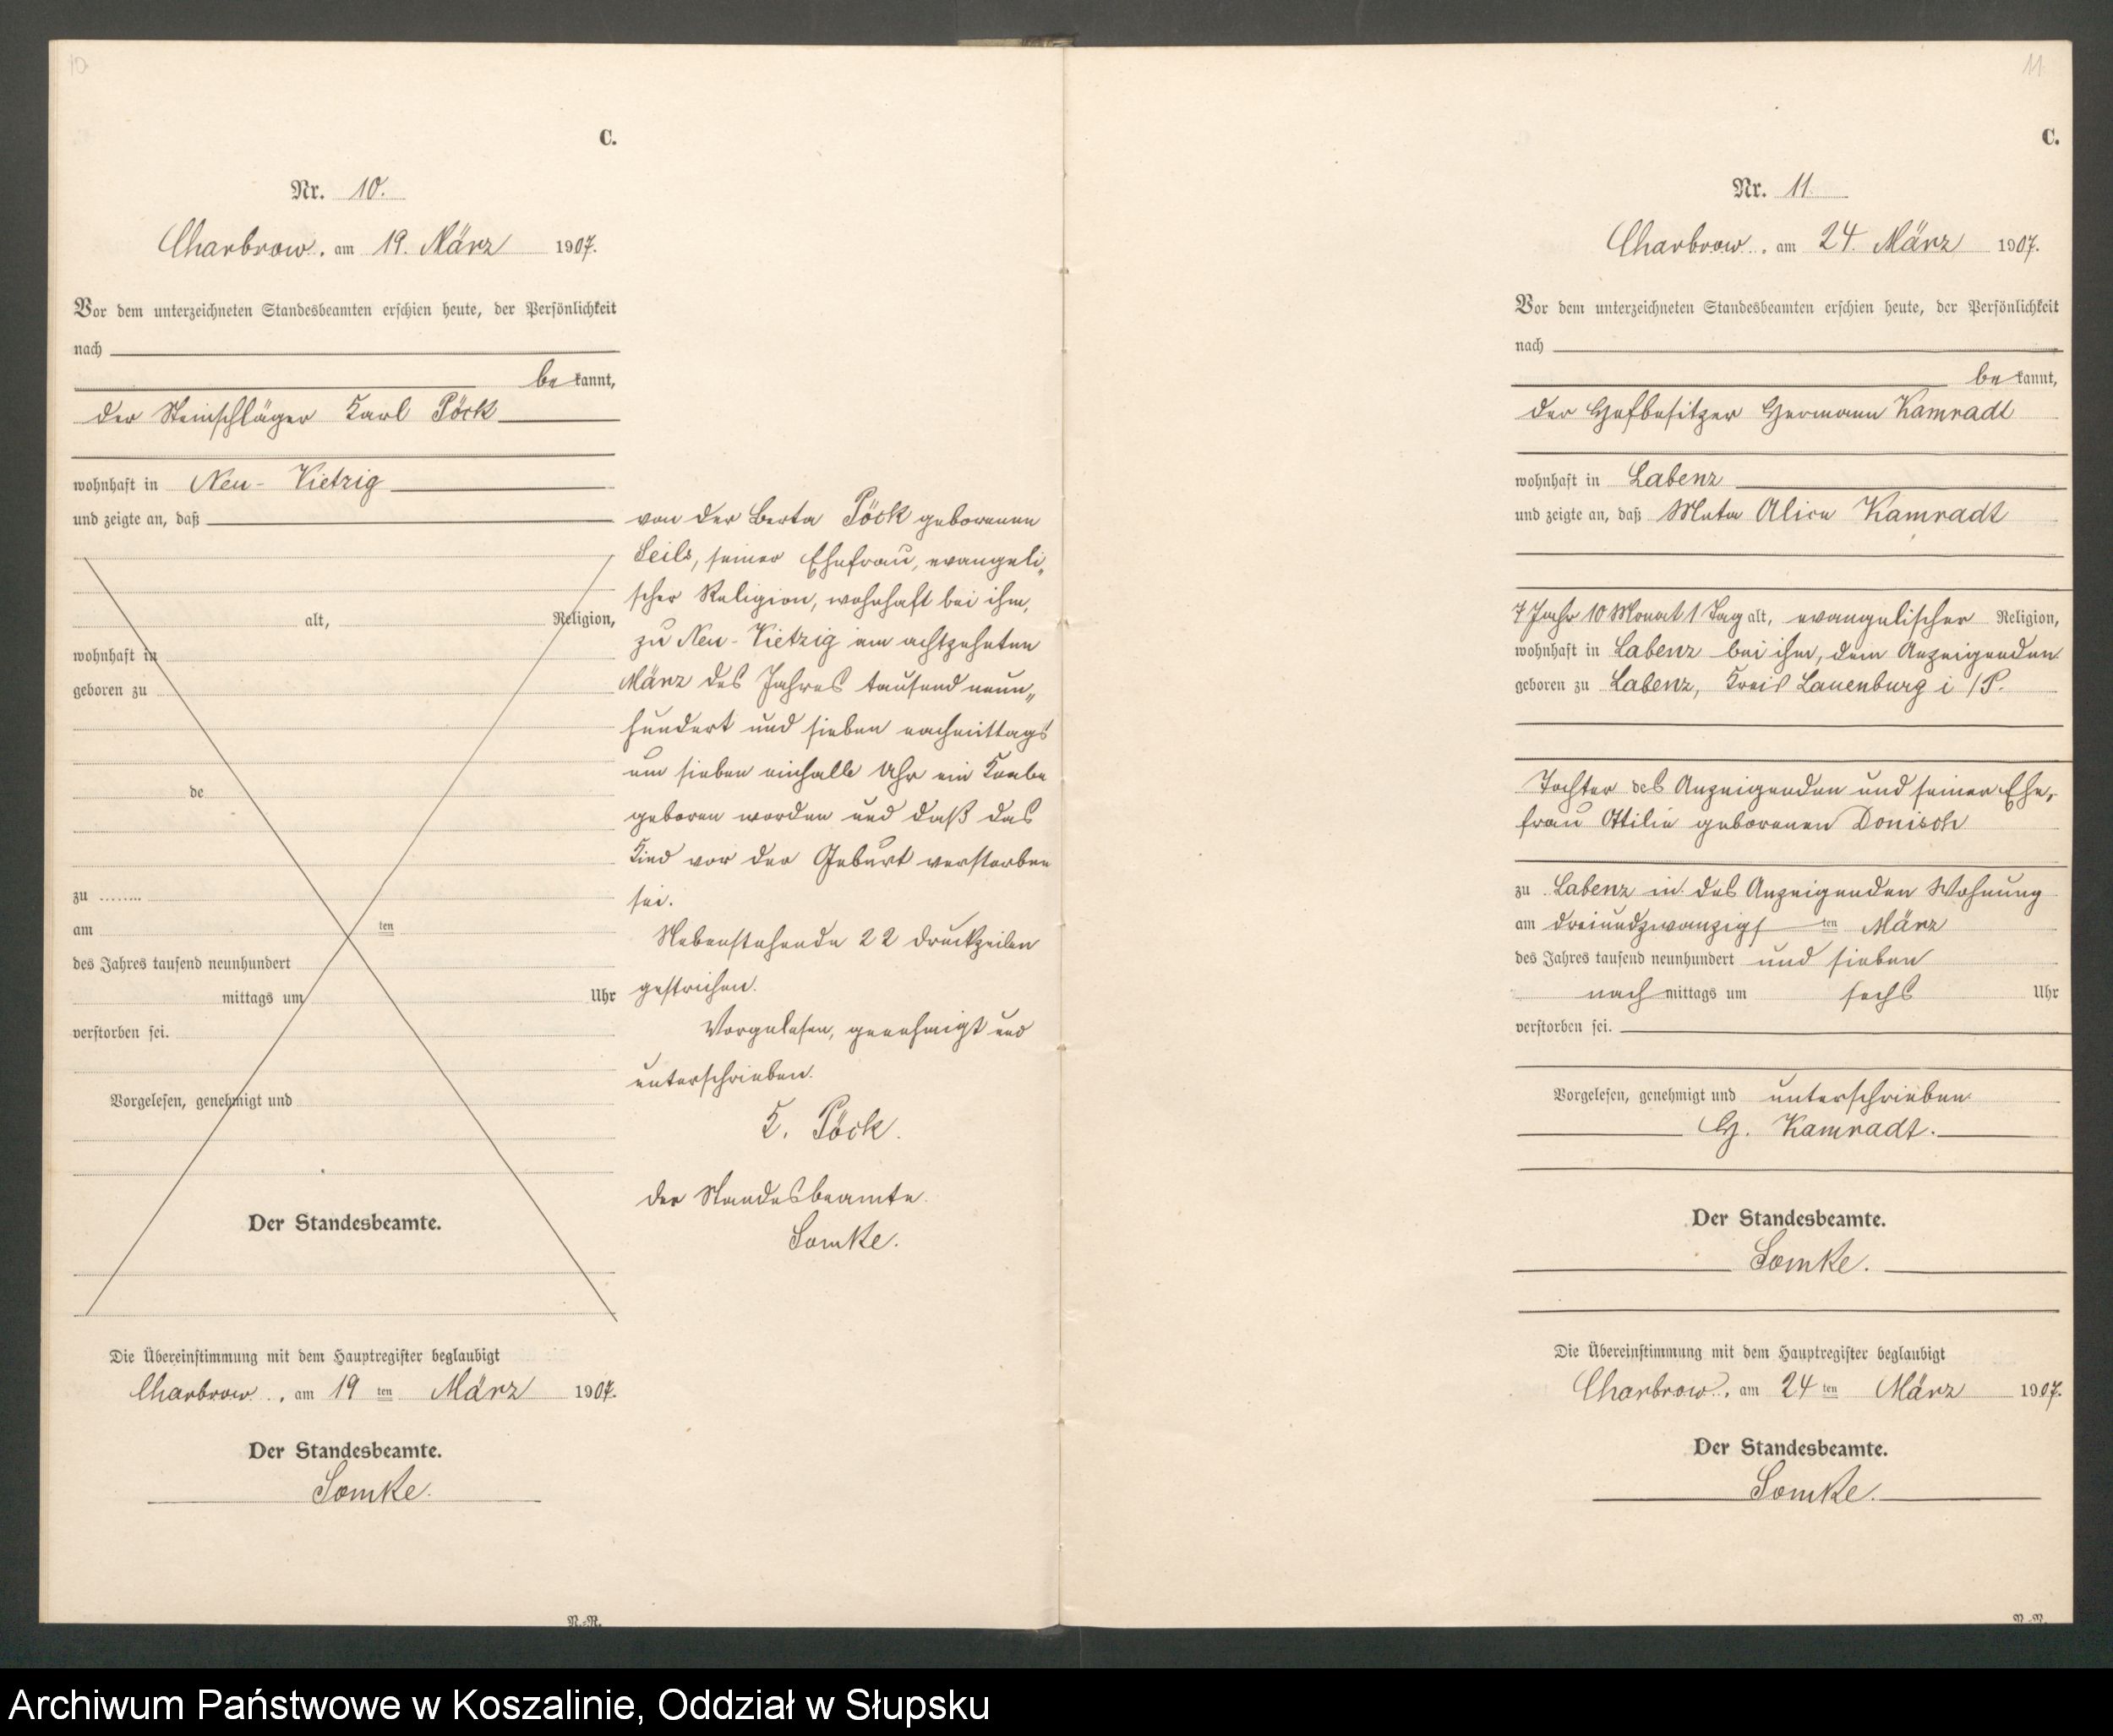 10
C.
Nr. 10.
Charbrow, am 19. März 1907.
Vor dem unterzeichneten Standesbeamten erschien heute, der Persönlichkeit
nach
be kannt,
der Steinschläger Karl Pöck
wohnhaft in Neu-Vietzig
und zeigte an, daß
alt, Religion,
wohnhaft in
geboren zu
de
zu ........
am ten
des Jahres tausend neunhundert
mittags um Uhr
verstorben sei.
Vorgelesen, genehmigt und
Der Standesbeamte.
von der Berta Pöck geborenen
Seils, seiner Ehefrau, evangeli„
scher Religion, wohnhaft bei ihm,
zu Neu-Vietzig am achtzehnten
März des Jahres tausend neun„
hundert und sieben nachmittags
um sieben einhalb Uhr ein Knabe
geboren worden und daß das
Kind vor der Geburt verstorben
sei.
Nebenstehende 22 Druckzeilen
gestrichen.
Vorgelesen, genehmigt und
unterschrieben.
K. Pöck.
Der Standesbeamte.
Somke.
Die Übereinstimmung mit dem Hauptregister beglaubigt
Charbrow, am 19 ten März 1907.
Der Standesbeamte.
Somke.
N.-R.
11
C.
Nr. 11
Charbrow, am 24. März 1907.
Vor dem unterzeichneten Standesbeamten erschien heute, der Persönlichkeit
nach
be kannt,
der Hofbesitzer Hermann Kamradt
wohnhaft in Labenz
und zeigte an, daß Meta Alice Kamradt
7 Jahr 10 Monat 1 Tag alt, evangelischer Religion,
wohnhaft in Labenz bei ihm, dem Anzeigenden
geboren zu Labenz, Kreis Lauenburg i/P.
Tochter des Anzeigenden und seiner Ehe„
frau Ottilie geborenen Donisch
zu Labenz in des Anzeigenden Wohnung
am dreiundzwanzigs ten März
des Jahres tausend neunhundert und sieben
nach mittags um sechs Uhr
verstorben sei.
Vorgelesen, genehmigt und unterschrieben.
H. Kamradt.
Der Standesbeamte.
Somke.
Die Übereinstimmung mit dem Hauptregister beglaubigt
Charbrow, am 24 ten März 1907.
Der Standesbeamte.
Somke.
Archiwum Państwowe w Koszalinie, Oddział w Słupsku